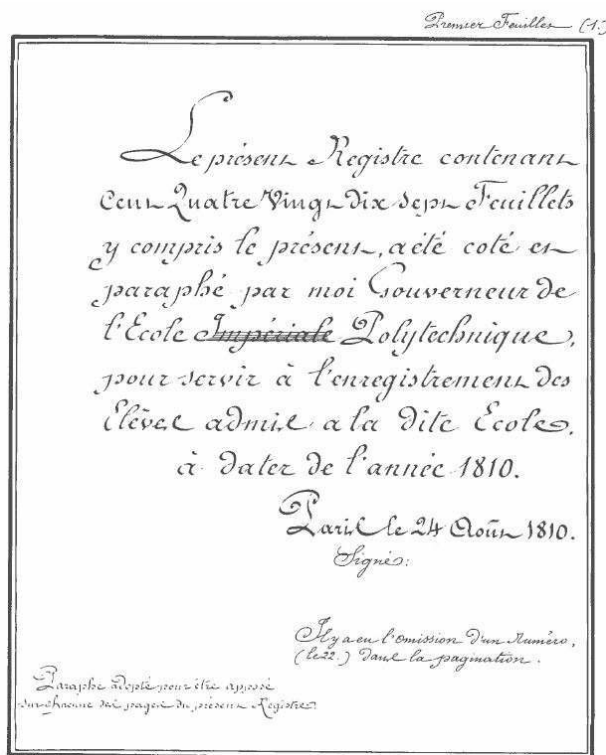 Premier Feuillet (1.)
Le présent Registre contenant
Cent Quatre Vingt dix sept Feuillets
y compris le présent, a été coté et
paraphé par moi Gouverneur de
l'Ecole Impériale Polytechnique,
pour servir à l'enregistrement des
Elèves admis a la dite Ecole,
à dater de l'année 1810.
Paris le 24 Août 1810.
Signé:
Il y a eu l'omission d'un Numéro,
(le 22.) dans la pagination.
Paraphe adopté pour être apposé
sur chacune des pages du présent Registre.